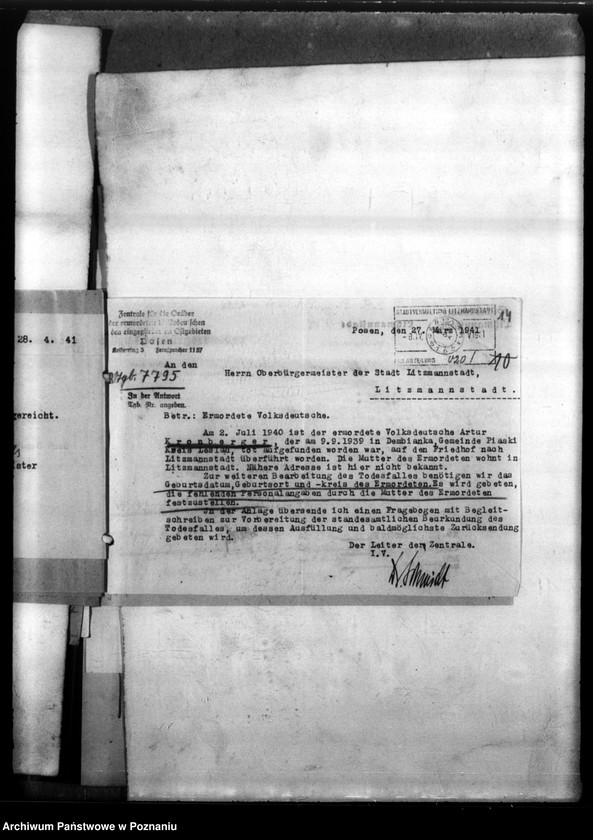 28. 4. 41
ereicht.
Zentrale für die Gräber
der ermordeten Volksdeutschen
den eingegliederten Ostgebieten
Posen
Fernsprecher 1187
Posen, den 27. März 1941
STADTVERWALTUNG LITZMANNSTADT
14
0201
An den
Tgb. 7795
Herrn Oberbürgermeister der Stadt Litzmannstadt,
In der Antwort
Tgb. Nr. angeben.
Litzmannstadt.
Betr.: Ermordete Volksdeutsche.
Am 2. Juli 1940 ist der ermordete Volksdeutsche Artur
Kronberger, der am 9.9.1939 in Dembianka, Gemeinde Piaski
Kreis Leslau, tot aufgefunden worden war, auf den Friedhof nach
Litzmannstadt überführt worden. Die Mutter des Ermordeten wohnt in
Litzmannstadt. Nähere Adresse ist hier nicht bekannt.
Zur weiteren Bearbeitung des Todesfalles benötigen wir das
Geburtsdatum, Geburtsort und -kreis des Ermordeten. Es wird gebeten,
die fehlenden Personalangaben durch die Mutter des Ermordeten
festzustellen.
In der Anlage übersende ich einen Fragebogen mit Begleit-
schreiben zur Vorbereitung der standesamtlichen Beurkundung des
Todesfalles, um dessen Ausfüllung und baldmöglichste Zurücksendung
gebeten wird.
Der Leiter der Zentrale.
I.V.
Schmidt
Archiwum Państwowe w Poznaniu